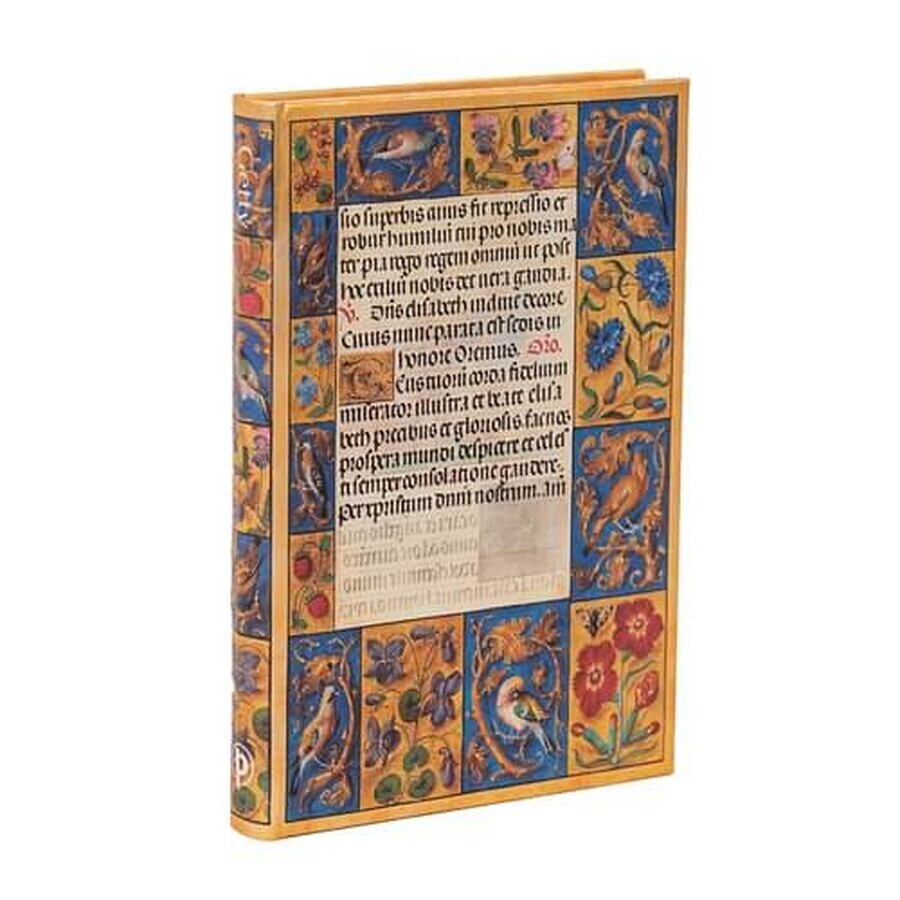 sio superbis auus fit repressio et
robur humiliū cui pro nobis ma
ter pia rogo regem omniū ut post
hoc exiliū nobis det uera gaudia.
V. Dn̄s elisabeth induit decore
Cuius nunc parata est sedis in
honore Oremus. Oro.
Eus tuorū corda fidelium
miserator illustra et beate elisa
beth precibus et gloriosis. fac nos
prospera mundi despicere et celes
ti semper consolatione gaudere.
Per xpristum dnm̄ nostrum. am̄